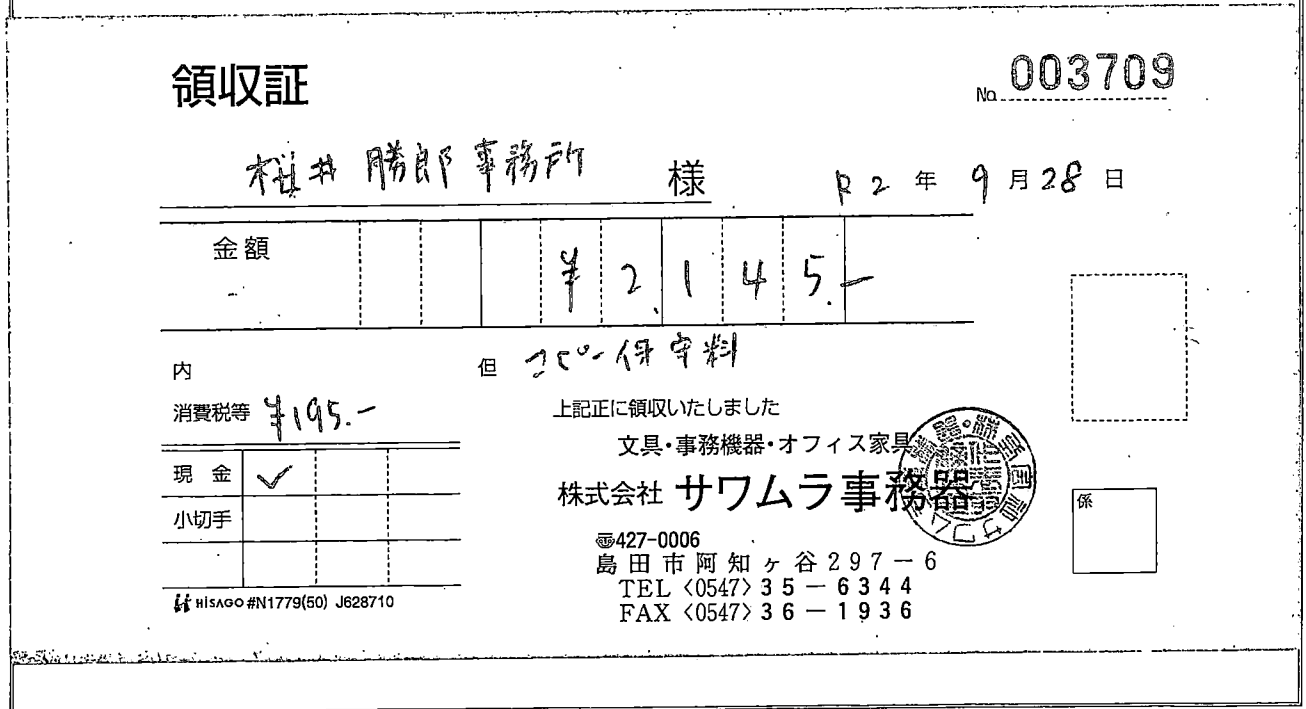 領収証
No. 003709
桜井勝郎事務所 様
R2年9月28日
金額 ¥2,145.-
内
但 コピー保守料
消費税等 ¥195.-
上記正に領収いたしました
文具・事務機器・オフィス家具
現金 ✓
株式会社 サワムラ事務器
小切手
係
〒427-0006
島田市阿知ヶ谷297-6
TEL <0547> 35-6344
FAX <0547> 36-1936
HISAGO #N1779(50) J628710